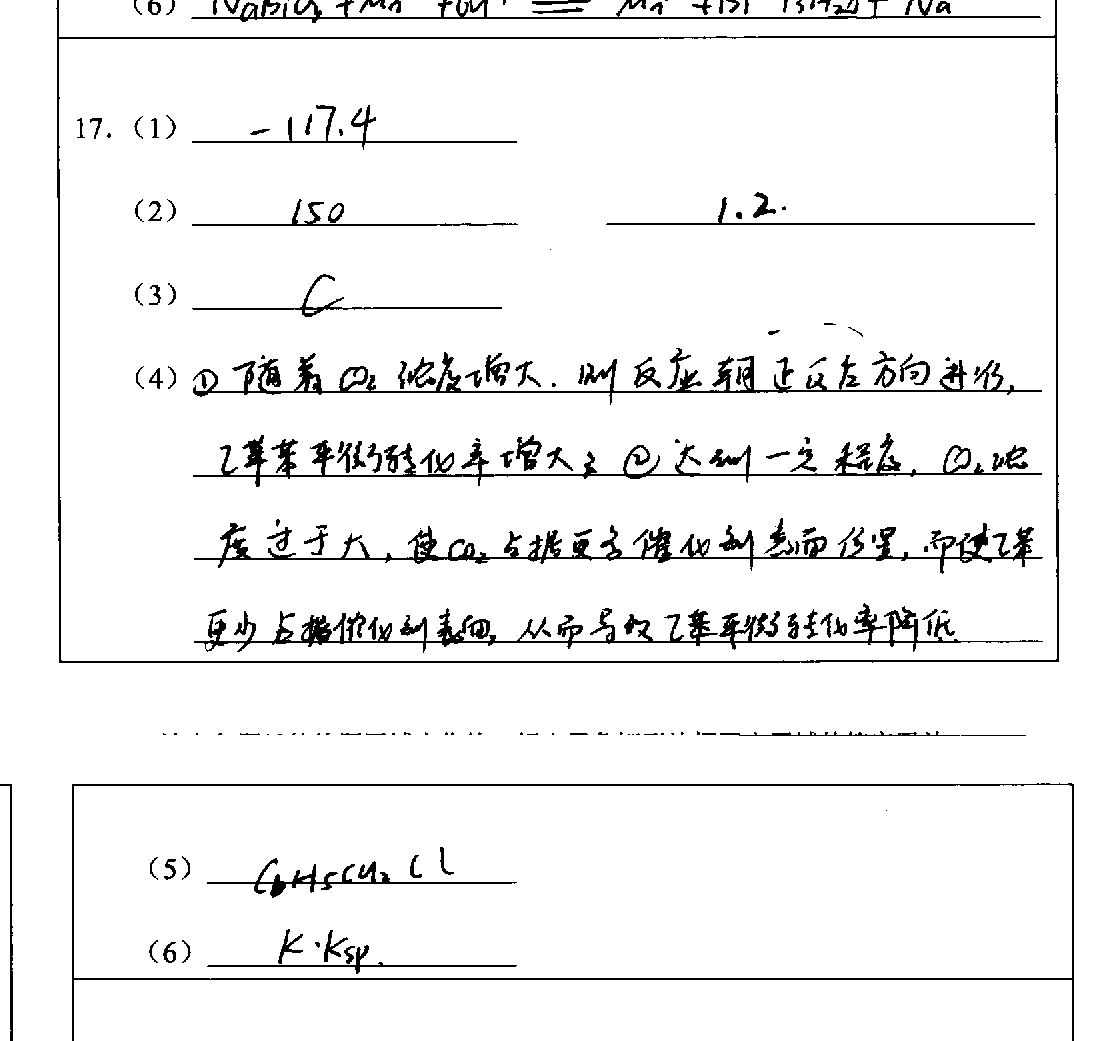 (6) NaBiO₃ + Mn
17. (1) -117.4
(2) 150 1.2.
(3) C
(4) ① 随着CO₂浓度增大.则反应朝正反应方向进行,
乙苯苯平衡转化率增大; ② 达到一定程度, CO₂浓
度过于大, 使CO₂占据更多催化剂表面位置, 而使乙苯
更少占据催化剂表面, 从而导致乙苯平衡转化率降低
(5) C6H5CH₂Cl
(6) K·Ksp.